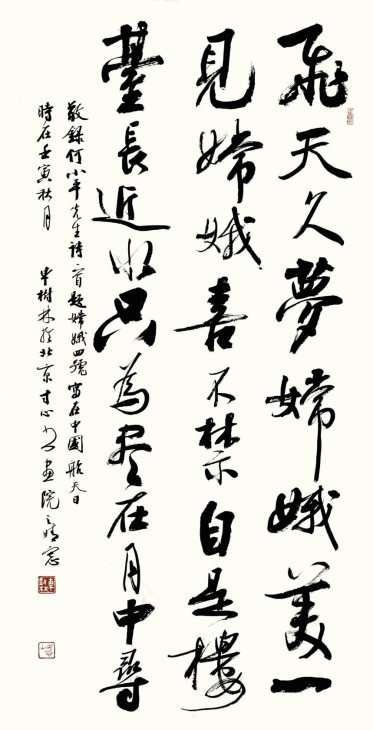 飛天久夢嫦娥美一
見嫦娥喜不禁自是樓
臺長近水只為尋在月中尋
敬錄何小平先生詩一首題嫦娥四號寫在中國航天日
時在壬寅秋月 畢樹林於北京寸心書畫院之晴窓